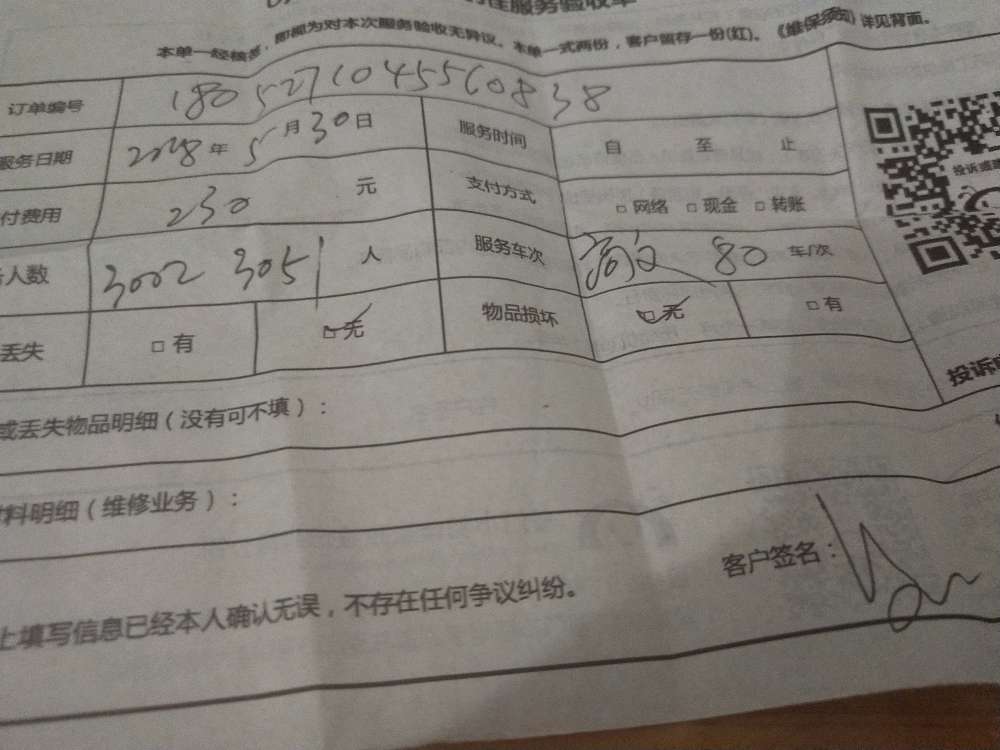 住服务验收单
本单一经核, 即都为对本次服务验收无异议。本单一式两份，客户留存一份(红)。《维保须知》详见背面。
订单编号 1805271045560838
服务日期 2018年5月30日 服务时间 自 至 止
付费用 230 元 支付方式 □ 网络 □ 现金 □ 转账
人数 3002 3051 人 服务车次 80 车/次
丢失 □ 有 □ 无 物品损坏 □ 无 □ 有
或丢失物品明细（没有可不填）：
料明细（维修业务）：
上填写信息已经本人确认无误，不存在任何争议纠纷。
客户签名：
投诉
投诉